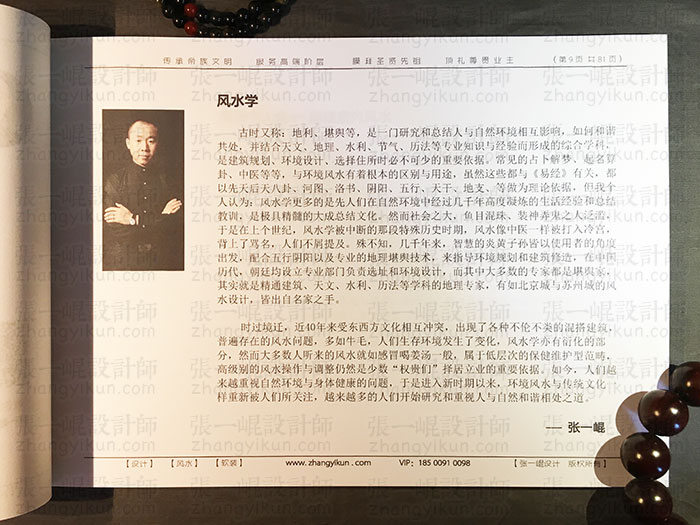 传承帝族文明 服务高端阶层 膜拜圣贤先祖 顶礼尊贵业主 (第9页 共81页)
风水学
古时又称:地利、堪舆等,是一门研究和总结人与自然环境相互影响,如何和谐
共处,并结合天文、地理、水利、节气、历法等专业知识与经验而形成的综合学科,
是建筑规划、环境设计、选择住所时必不可少的重要依据。常见的占卜解梦、起名算
卦、中医等等,与环境风水有着根本的区别与用途,虽然这些都与《易经》有关,都
以先天后天八卦、河图、洛书、阴阳、五行、天干、地支、等做为理论依据,但我个
人认为:风水学更多的是先人们在自然环境中经过几千年高度凝炼的生活经验和总结
教训,是极具精髓的大成总结文化。然而社会之大,鱼目混珠、装神弄鬼之人泛滥,
于是在上个世纪,风水学被中断的那段特殊历史时期,风水像中医一样被打入冷宫,
背上了骂名,人们不屑提及。殊不知,几千年来,智慧的炎黄子孙皆以使用者的角度
出发,配合五行阴阳以及专业的地理堪舆技术,来指导环境规划和建筑修造,在中国
历代,朝廷均设立专业部门负责选址和环境设计,而其中大多数的专家都是堪舆家,
其实就是精通建筑、天文、水利、历法等学科的地理专家,有如北京城与苏州城的风
水设计,皆出自名家之手。
时过境迁,近40年来受东西方文化相互冲突,出现了各种不伦不类的混搭建筑,
普遍存在的风水问题,多如牛毛,人们生存环境发生了变化,风水学亦有衍化的部
分,然而大多数人所来的风水就如感冒喝姜汤一般,属于低层次的保健维护型范畴,
高级别的风水操作与调整仍然是少数“权贵们”择居立业的重要依据。如今,人们越
来越重视自然环境与身体健康的问题,于是进入新时期以来,环境风水与传统文化一
样重新被人们所关注,越来越多的人们开始研究和重视人与自然和谐相处之道。
— 张一崐
【设计】 【风水】 【软装】 www.zhangyikun.com VIP: 185 0091 0098 【张一崐设计 版权所有】
張一崐設計師
zhangyikun.com